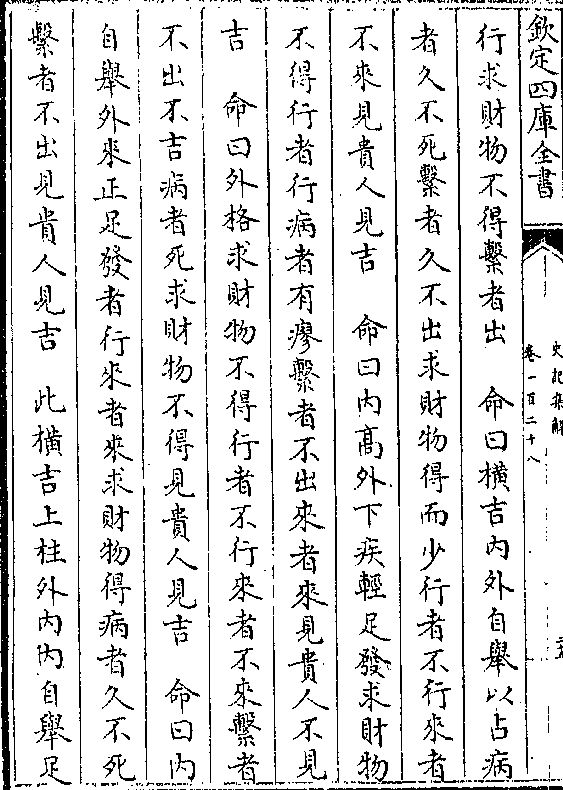 欽定四庫全書
史記集解
卷一百二十八
行求財物不得繫者出　命曰橫吉內外自舉以占病
者久不死繫者久不出求財物得而少行者不行來者
不來見貴人見吉　命曰內高外下疾輕足發求財物
不得行者行病者有瘳繫者不出來者來見貴人不見
吉　命曰外格求財物不得行者不行來者不來繫者
不出不吉病者死求財物不得見貴人見吉　命曰內
自舉外來正足發者行來者來求財物得病者久不死
繫者不出見貴人見吉　此橫吉上柱外內內自舉足